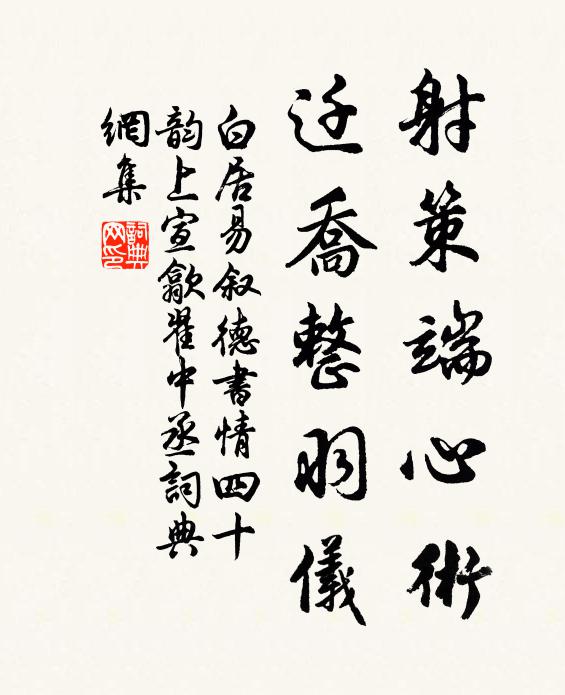 射策端心術
迁喬整羽儀
白居易叙德書情四十
韵上宣歙翟中丞詞典
網集
詞典
网印